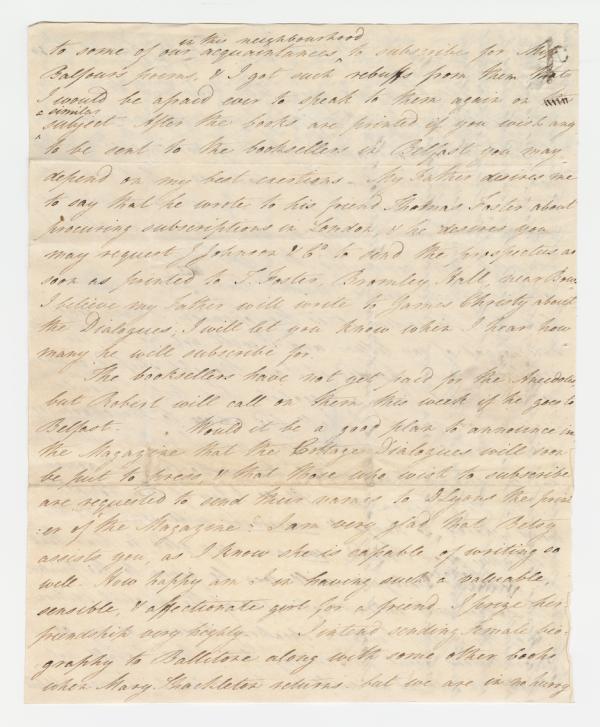 in this neighbourhood
to some of our acquaintances to subscribe for Miss
Balfour's poems, & I got such rebuffs from them that
I would be afraid ever to speak to them again on
a similar
subject After the books are printed if you wish any
to be sent to the booksellers in Belfast you may
depend on my best exertions — My Father desires me
to say that he wrote to his friend Thomas Foster about
procuring subscriptions in London, & he desires you
may request J Johnson & Co to send the prospectus as
soon as printed to T. Foster, Bromley Hall, near Bow.
I believe my Father will write to James Christy about
the Dialogues; I will let you know when I hear how
many he will subscribe for.
The booksellers have not yet paid for the Anecdotes
but Robert will call on them this week if he goes to
Belfast. Would it be a good plan to announce in
the Magazine that the Cottage Dialogues will soon
be put to press, & that those who wish to subscribe
are requested to send their names to D Lyons the print
:er of the Magazine? I am very glad that Betsy
assists you, as I know she is capable of writing so
well. How happy am I in having such a valuable,
sensible, & affectionate girl for a friend, I prize her
friendship very highly. I intend sending female bio-
graphy to Ballitore along with some other books
when Mary Shackleton returns but we are in no hurry